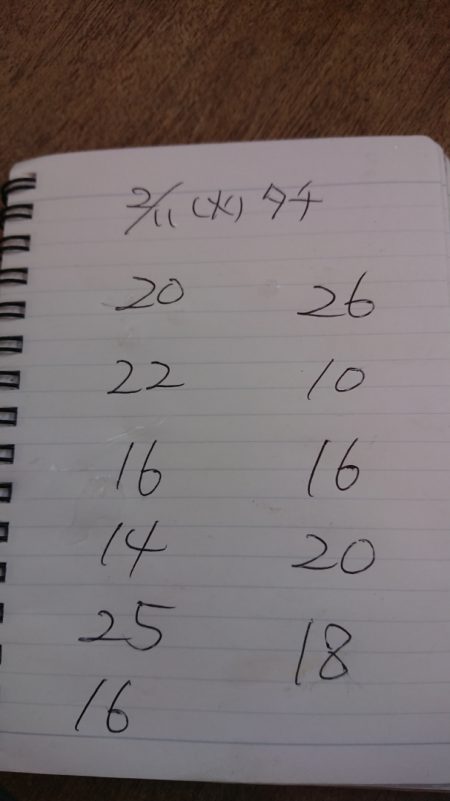 2/11 (火) タチ
20 26
22 10
16 16
14 20
25 18
16